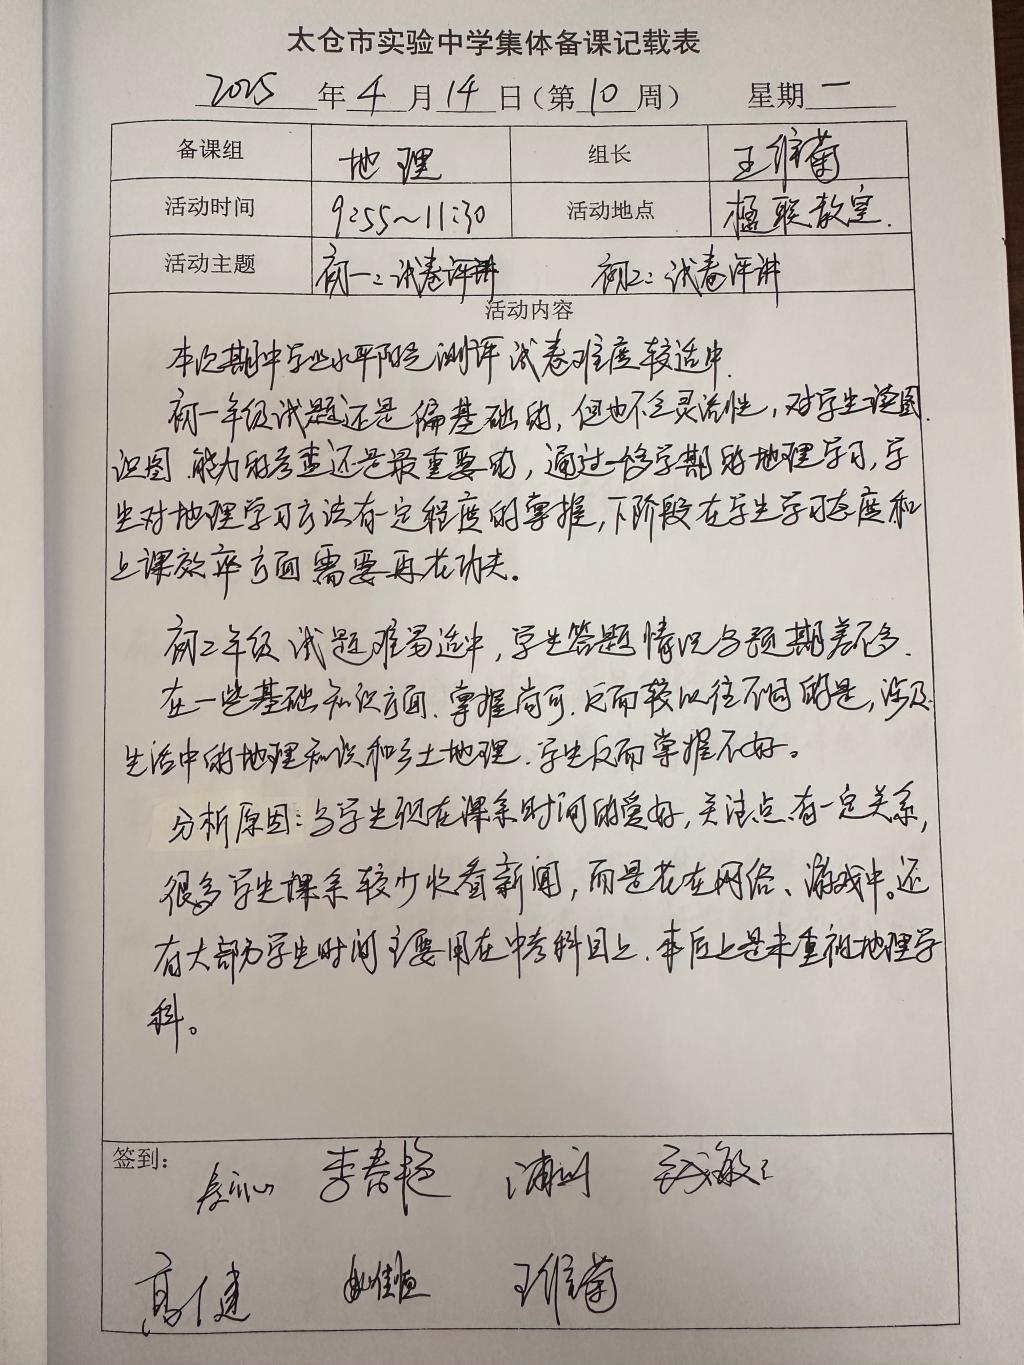 太仓市实验中学集体备课记载表
2025年4月14日（第10周） 星期一
备课组 地理 组长 王维菊
活动时间 9:55~11:30 活动地点 楹联教室.
活动主题 初一：试卷评讲 初二：试卷评讲
活动内容
本次期中学业水平阳光测评试卷难度较适中.
初一年级试题还是偏基础的，但也不乏灵活性，对学生读图.
识图.能力的考查还是最重要的，通过一个学期的地理学习，学
生对地理学习方法有一定程度的掌握，下阶段在学生学习态度和
上课效率方面需要再花功夫。
初二年级试题难易适中，学生答题情况与预期差不多.
在一些基础知识方面.掌握尚可.反而较以往不同的是，涉及
生活中的地理知识和乡土地理.学生反而掌握不好。
分析原因：与学生现在课余时间的爱好，关注点有一定关系，
很多学生课余较少收看新闻，而是花在网络、游戏中。还
有大部分学生时间主要用在中考科目上.本质上是未重视地理学
科。
签到：
李春艳
高健 王维菊